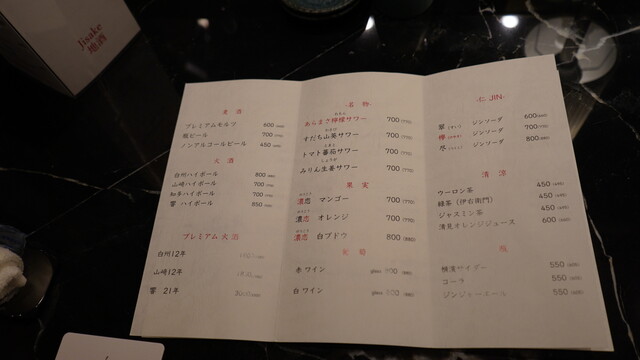 Jisake
地酒
麦 酒
プレミアムモルツ 600
瓶ビール 700
ノンアルコールビール 450
大 酒
白州ハイボール 800
山崎ハイボール 700
知多ハイボール 700
響 ハイボール 850
プレミアム大酒
白州12年
山崎12年
響 21年
名 物
あらまさ檸檬サワー 700 (770)
すだち山葵サワー 700 (770)
トマト蕃茄サワー 700 (770)
みりん生姜サワー 700 (770)
果 実
濃恋 マンゴー 700 (770)
濃恋 オレンジ 700 (770)
濃恋 白ブドウ 800 (880)
赤 ワイン glass 800 (880)
白 ワイン glass 800 (880)
JIN
翠 ジンソーダ 600 (660)
欅 ジンソーダ 700 (770)
尽 ジンソーダ 800 (880)
清 涼
ウーロン茶 450 (495)
緑茶(伊右衛門) 450 (495)
ジャスミン茶 450 (495)
清見オレンジジュース 600 (660)
横濱サイダー 550 (605)
コーラ 550 (605)
ジンジャーエール 550 (605)